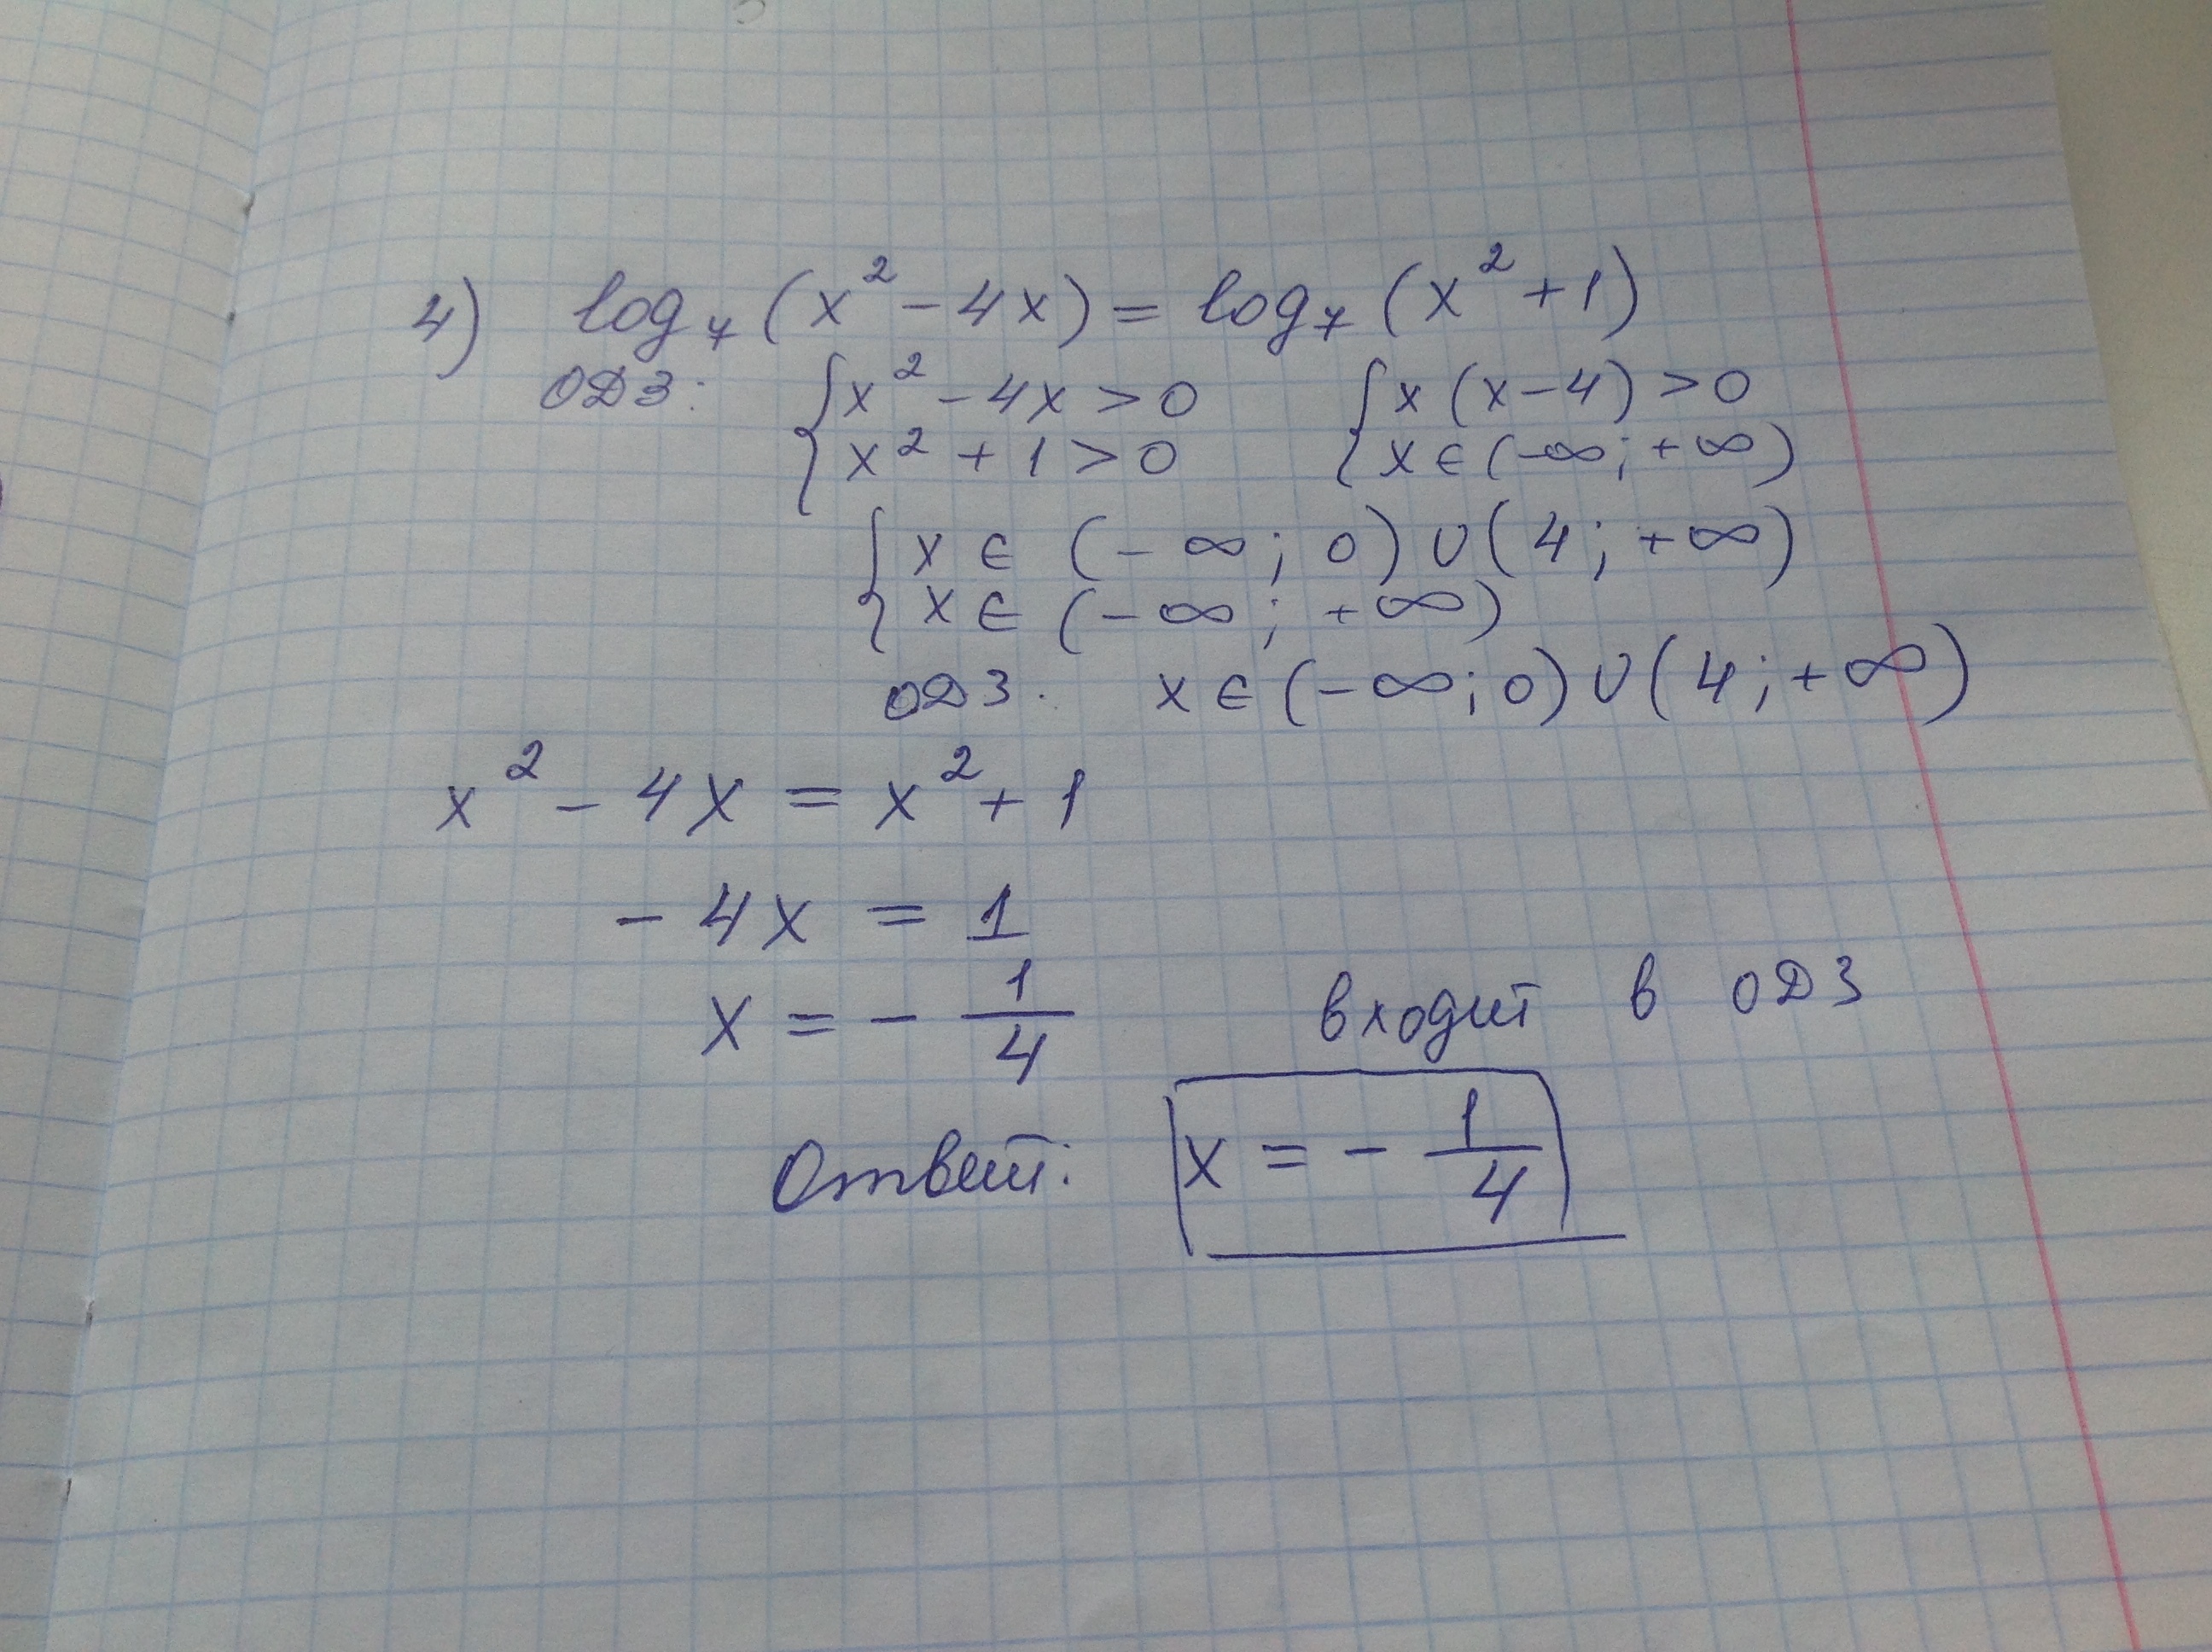 4) log₇(x² - 4x) = log₇(x² + 1)
ОДЗ: { x² - 4x > 0 { x(x - 4) > 0
{ x² + 1 > 0 { x ∈ (-∞; +∞)
{ x ∈ (-∞; 0) ∪ (4; +∞)
{ x ∈ (-∞; +∞)
ОДЗ. x ∈ (-∞; 0) ∪ (4; +∞)
x² - 4x = x² + 1
- 4x = 1
x = - 1/4 входит в ОДЗ
Ответ: x = - 1/4